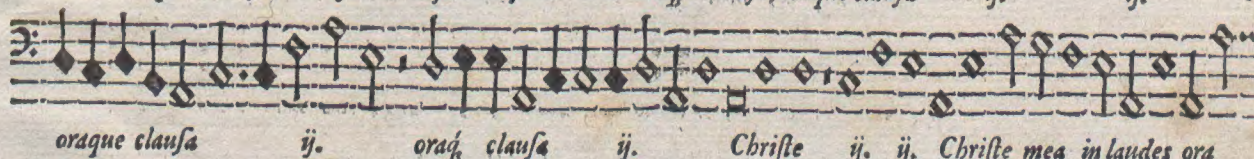 oraque clauſa ij. oraq́ clauſa ij. Chriſte ij. ij. Chriſte mea in laudes ora